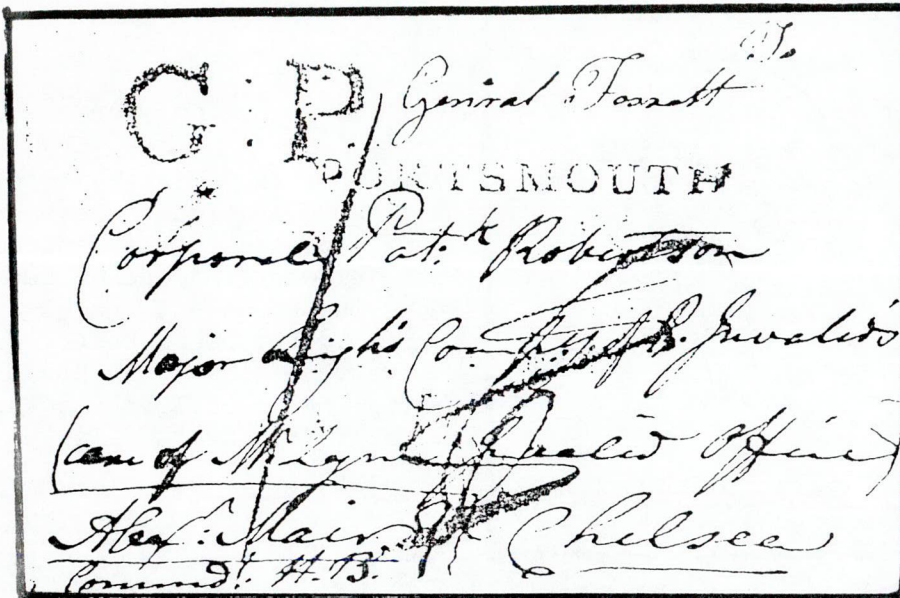 To
G : P. General Fossett
PORTSMOUTH
Corporal Pat:k Robertson
Major Company of R. Invalids
(care of Mr Lyn Invalid Office)
Alexr. Mair Chelsea
Commdt. H. B.